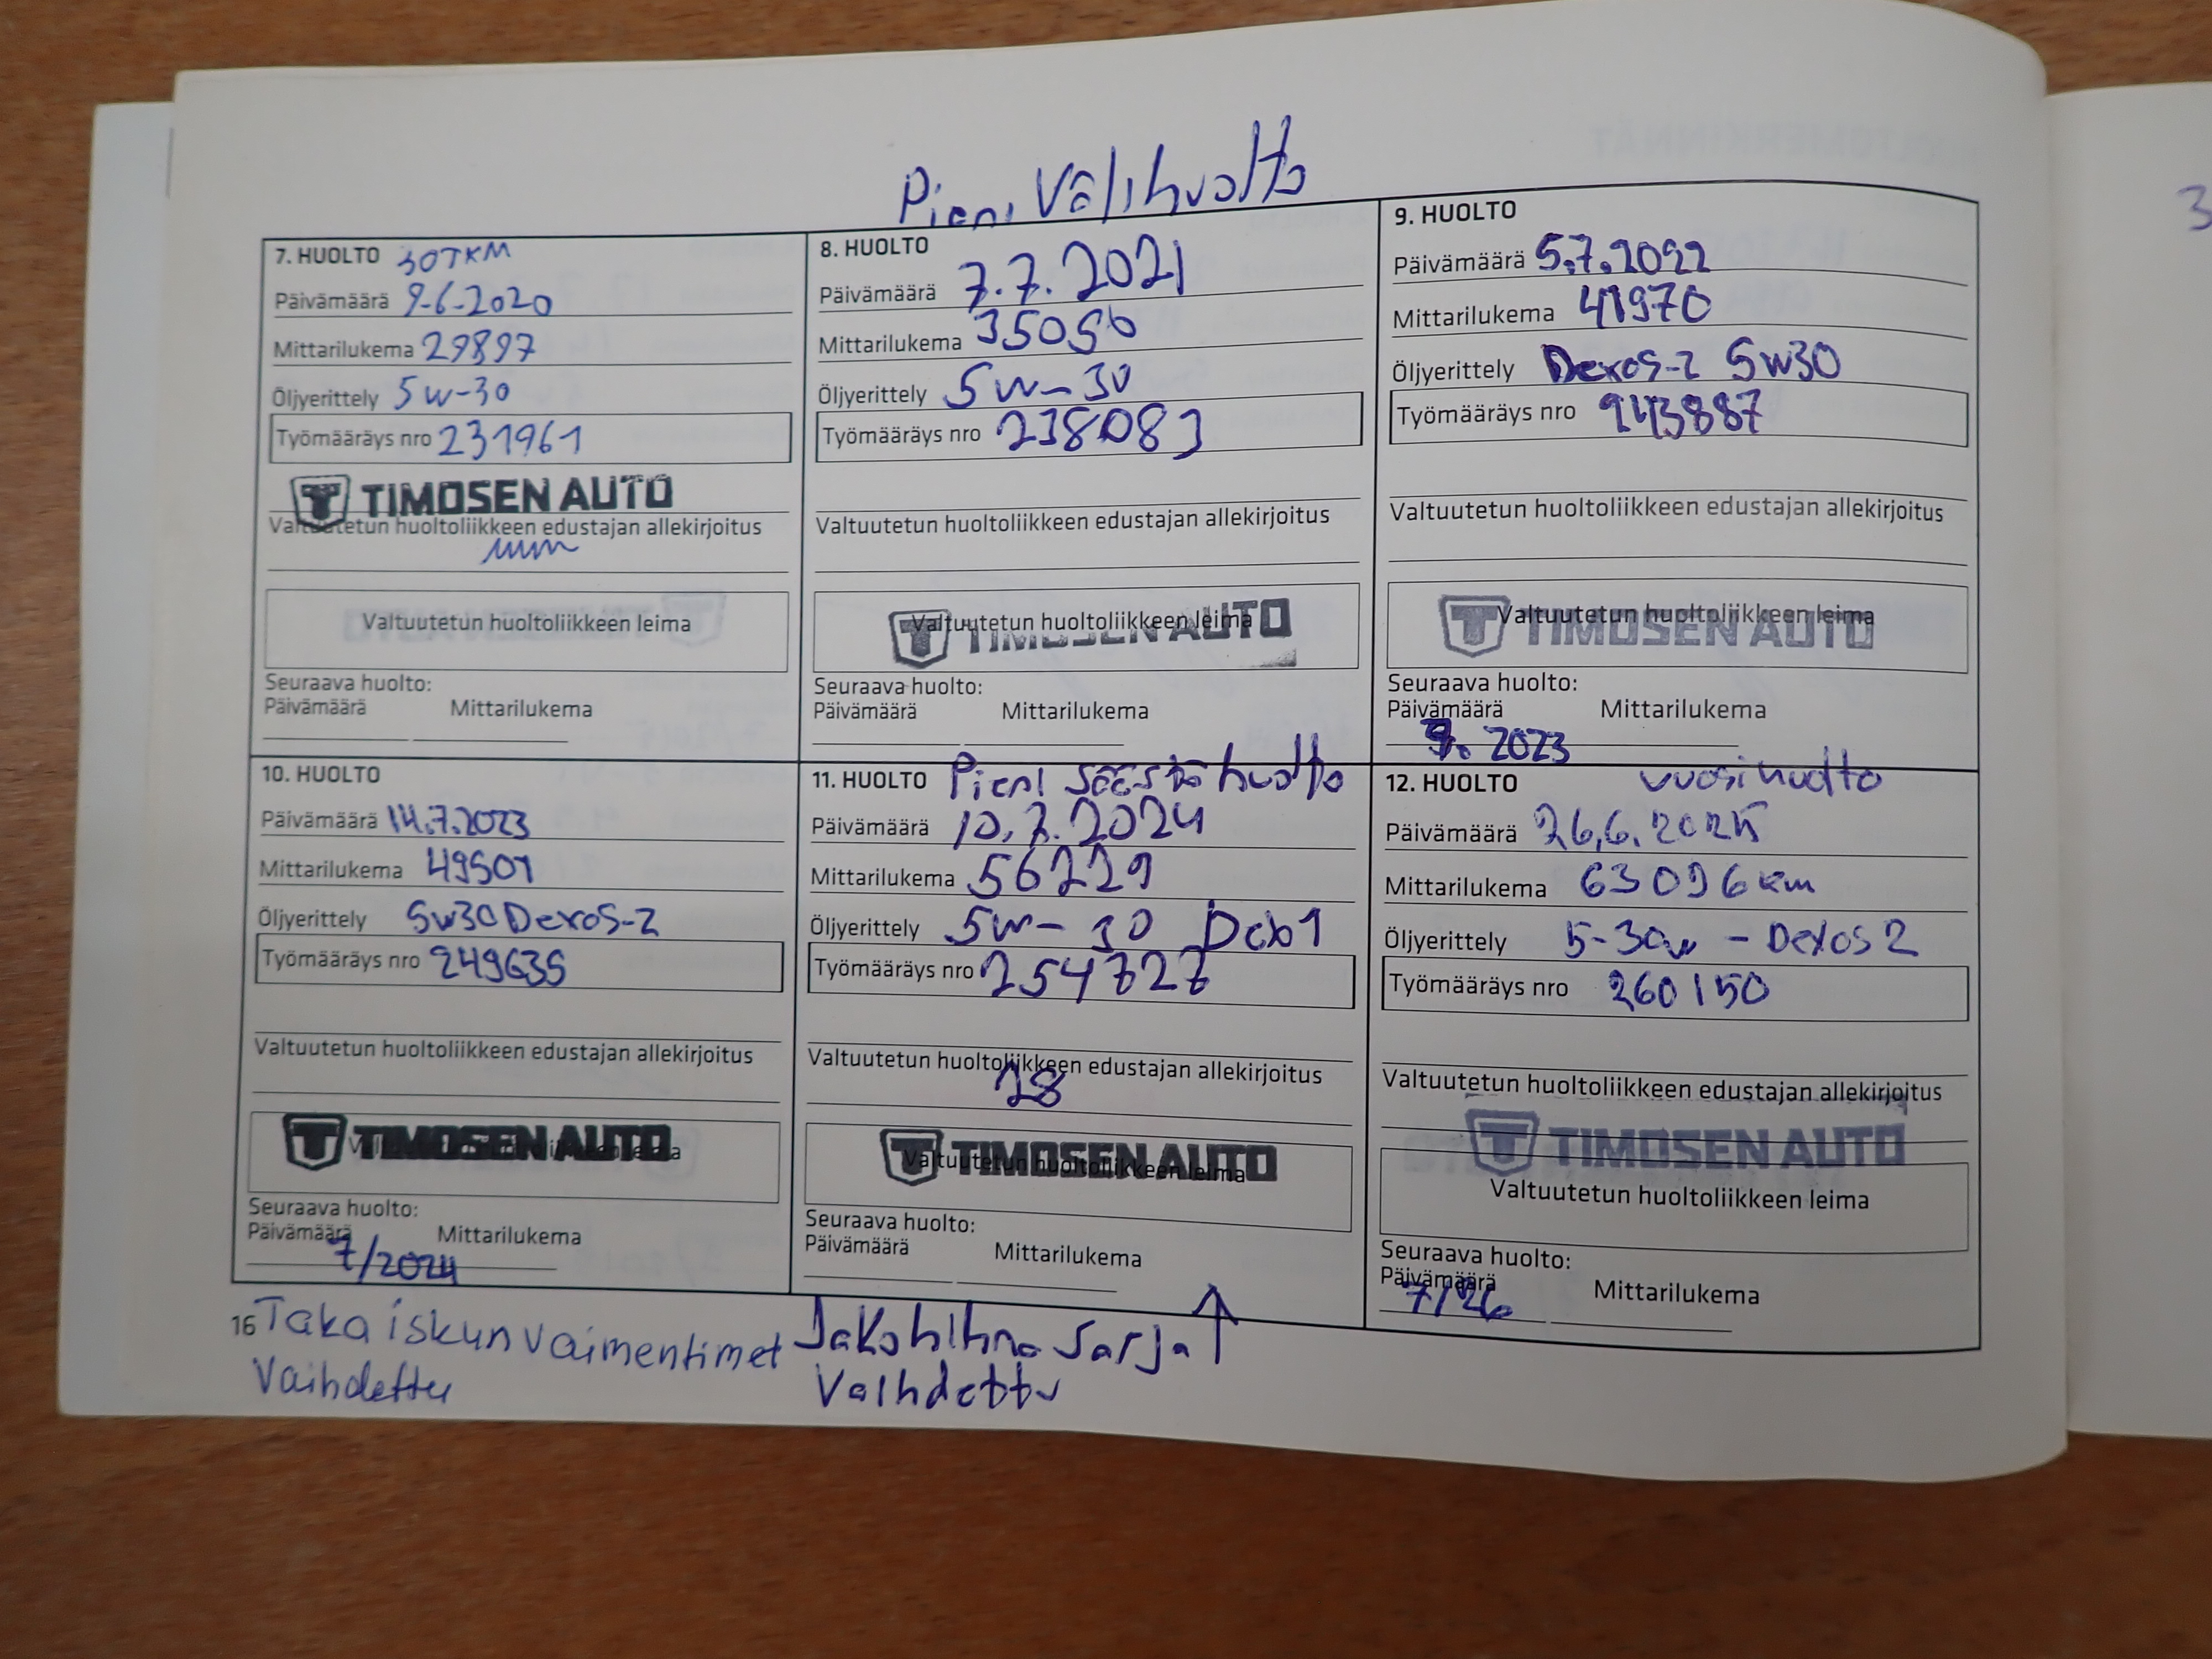 Pieni Välihuolto
7. HUOLTO 30TKM
Päivämäärä 9-6-2020
Mittarilukema 29897
Öljyerittely 5w-30
Työmääräys nro 231961
TIMOSEN AUTO
Valtuutetun huoltoliikkeen edustajan allekirjoitus
Valtuutetun huoltoliikkeen leima
Seuraava huolto:
Päivämäärä Mittarilukema
8. HUOLTO
Päivämäärä 7.7.2021
Mittarilukema 35056
Öljyerittely 5w-30
Työmääräys nro 238083
Valtuutetun huoltoliikkeen edustajan allekirjoitus
Valtuutetun huoltoliikkeen leima
TIMOSEN AUTO
Seuraava huolto:
Päivämäärä Mittarilukema
9. HUOLTO
Päivämäärä 5.7.2022
Mittarilukema 41970
Öljyerittely Dexos-2 5w30
Työmääräys nro 243887
Valtuutetun huoltoliikkeen edustajan allekirjoitus
Valtuutetun huoltoliikkeen leima
TIMOSEN AUTO
Seuraava huolto:
Päivämäärä Mittarilukema
2023
10. HUOLTO
Päivämäärä 14.7.2023
Mittarilukema 49501
Öljyerittely 5w30 Dexos-2
Työmääräys nro 249635
Valtuutetun huoltoliikkeen edustajan allekirjoitus
TIMOSEN AUTO
Seuraava huolto:
Päivämäärä Mittarilukema
7/2024
11. HUOLTO Pieni Säästöhuolto
Päivämäärä 10.7.2024
Mittarilukema 56229
Öljyerittely 5w-30
Työmääräys nro 254727
Valtuutetun huoltoliikkeen edustajan allekirjoitus
28
Valtuutetun huoltoliikkeen leima
TIMOSEN AUTO
Seuraava huolto:
Päivämäärä Mittarilukema
12. HUOLTO vuosihuolto
Päivämäärä 26.6.2025
Mittarilukema 63096 km
Öljyerittely 5-30w - Dexos 2
Työmääräys nro 260150
Valtuutetun huoltoliikkeen edustajan allekirjoitus
TIMOSEN AUTO
Valtuutetun huoltoliikkeen leima
Seuraava huolto:
Päivämäärä Mittarilukema
7/26
16
Taka iskunvaimentimet
Vaihdettu
Jakohihna sarja ↑
Vaihdettu